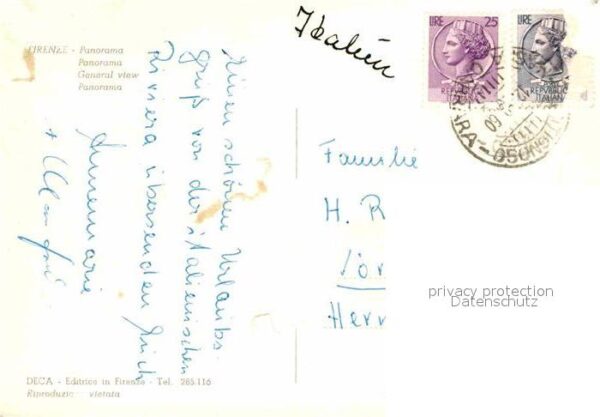 FIRENZE - Panorama
Panorama
General view
Panorama
Italien
LIRE 25
REPUBBLICA
ITALIANA
LIRE
REPUBBLICA
ITALIANA
Einen schönen Urlaubs-
gruß von der italienischen
Riviera übersenden Euch
Annemarie
+
Familie
H. R
Herr
privacy protection
Datenschutz
DECA - Editrice in Firenze - Tel. 265.116
Riproduzio vietata